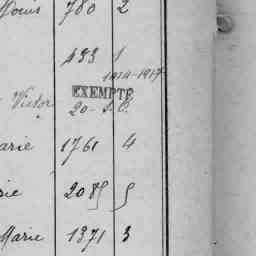 Louis 780 2
433 1
1914-1917
Victor EXEMPTÉ
20- S.C.
arie 1761 4
sie 2085 5
Marie 1371 3